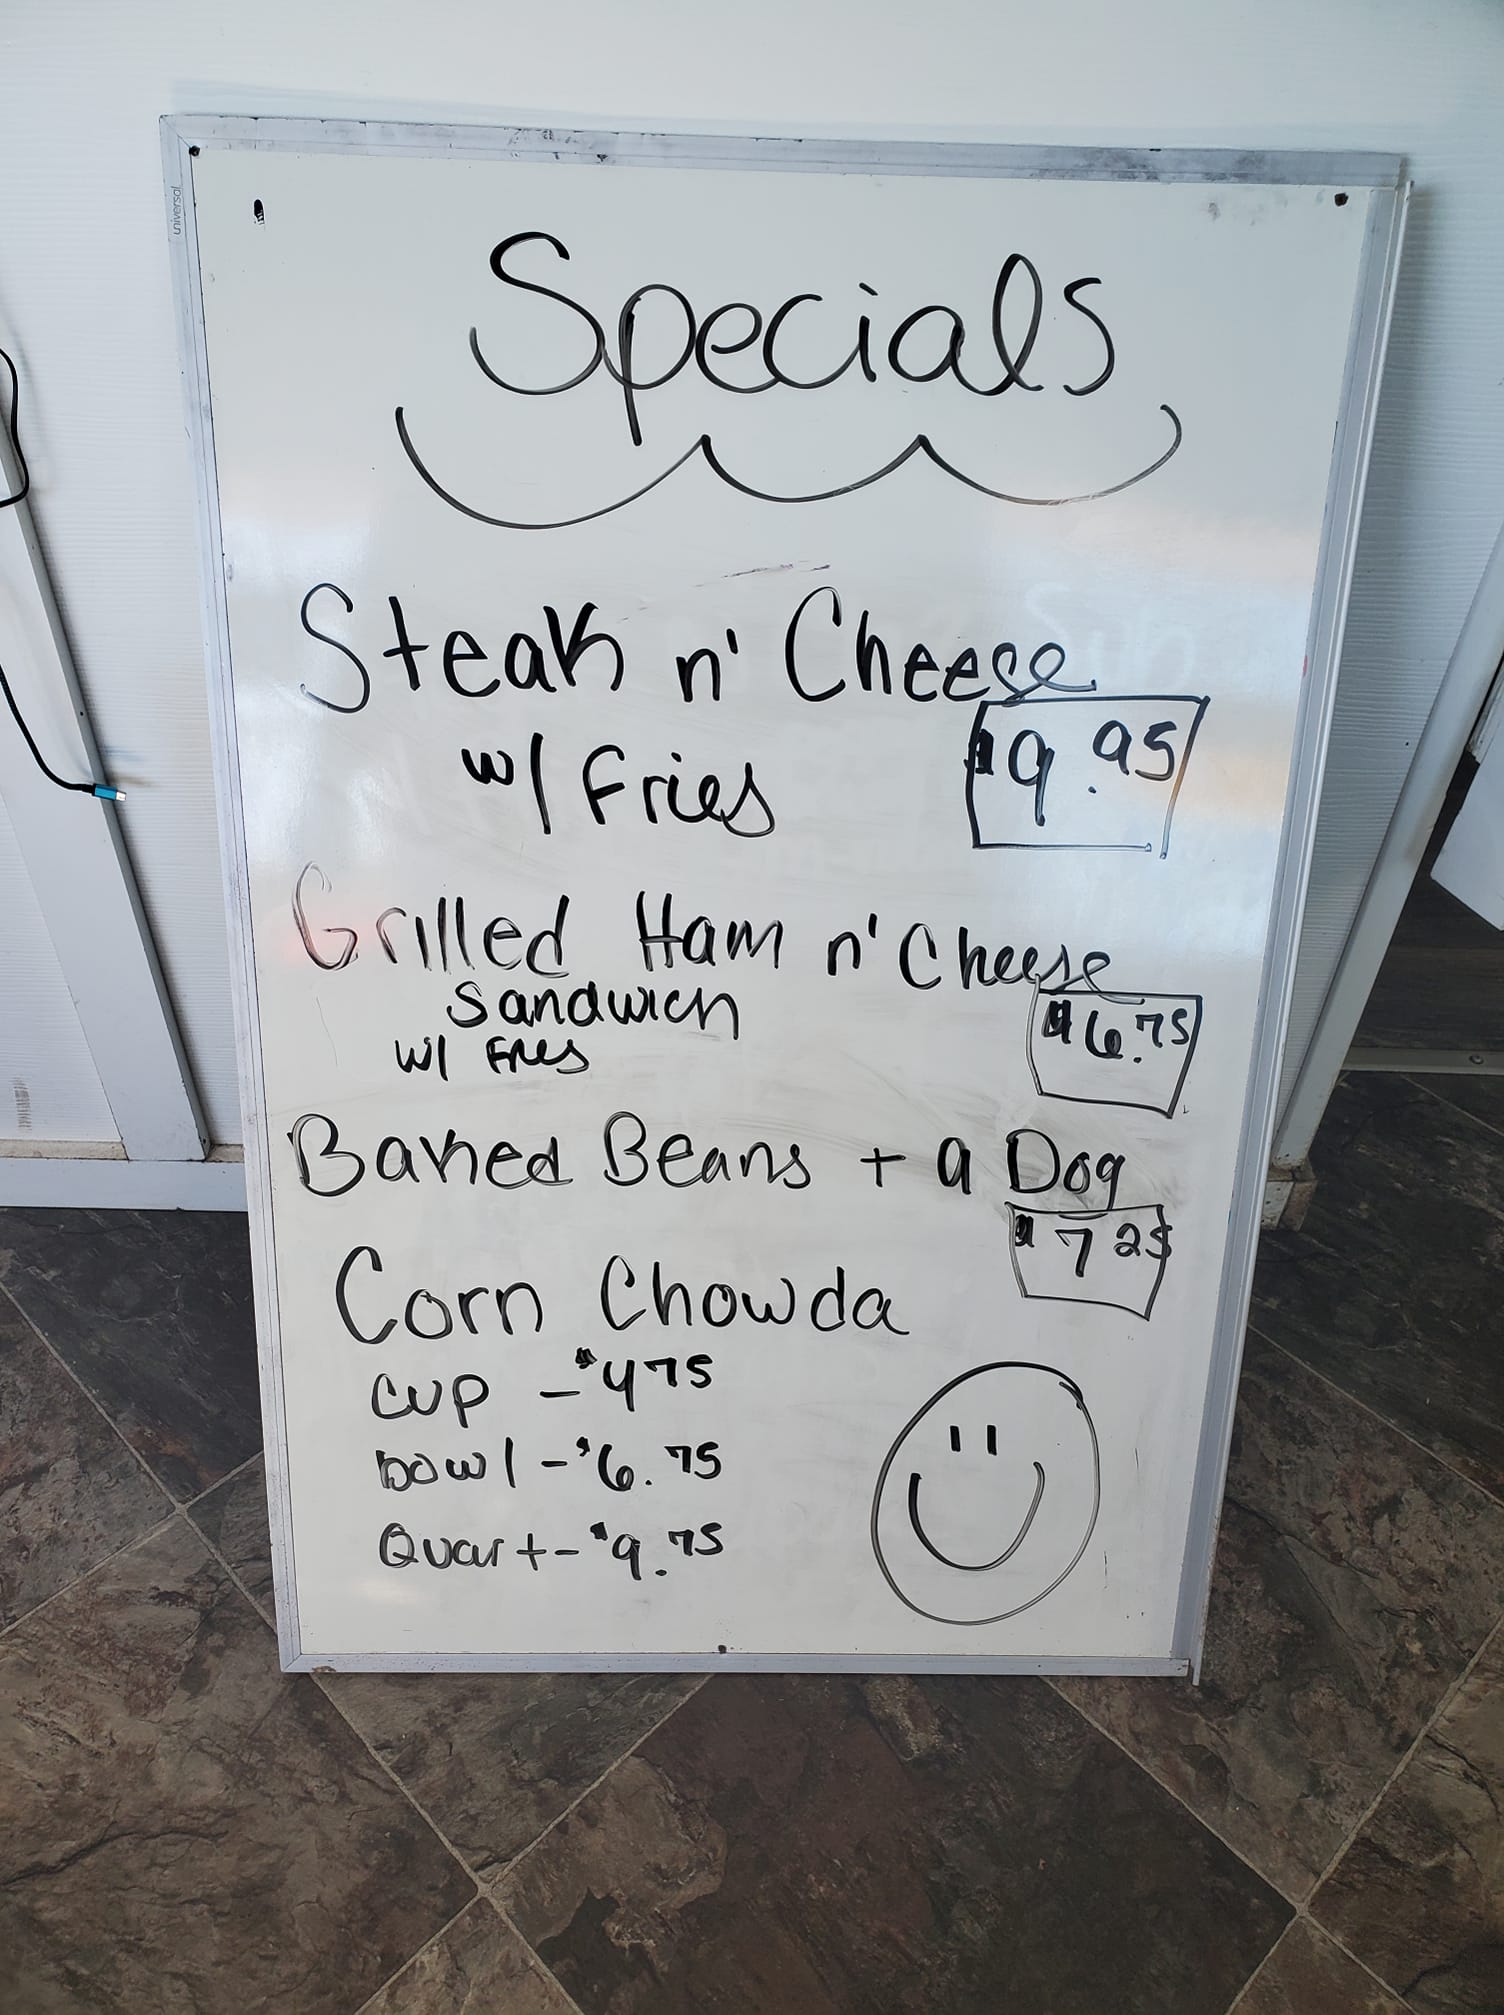 universal
Specials
Steak n' Cheese
w/ Fries
$9.95
Grilled Ham n' Cheese
Sandwich
w/ Fries
$6.75
Baked Beans + a Dog
$7 25
Corn Chowda
cup - $4 75
bowl - $6.75
Quart - $9.75